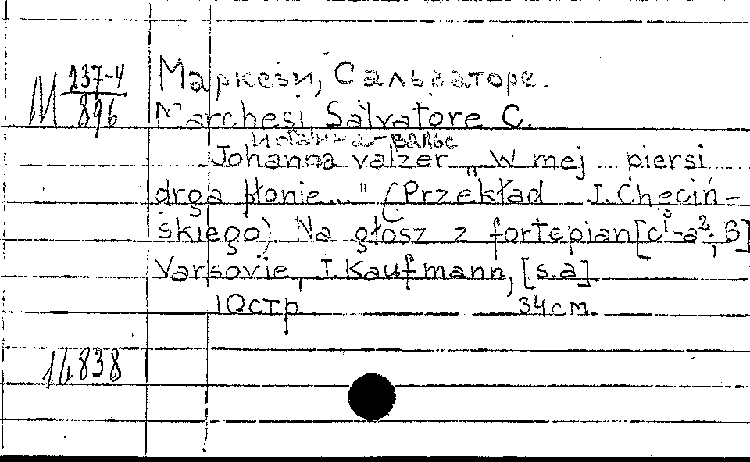 М 237-4/896
Маркези, Сальваторе.
Marchesi Salvatore C.
Иоганна-вальс
Johanna valzer „W mej piersi
droga płonie..." (Przekład J. Chęciń-
skiego) Na głosz z fortepian [c¹-a²; B]
Varsovie, J. Kaufmann, [s.a]
10стр. 34см.
14838